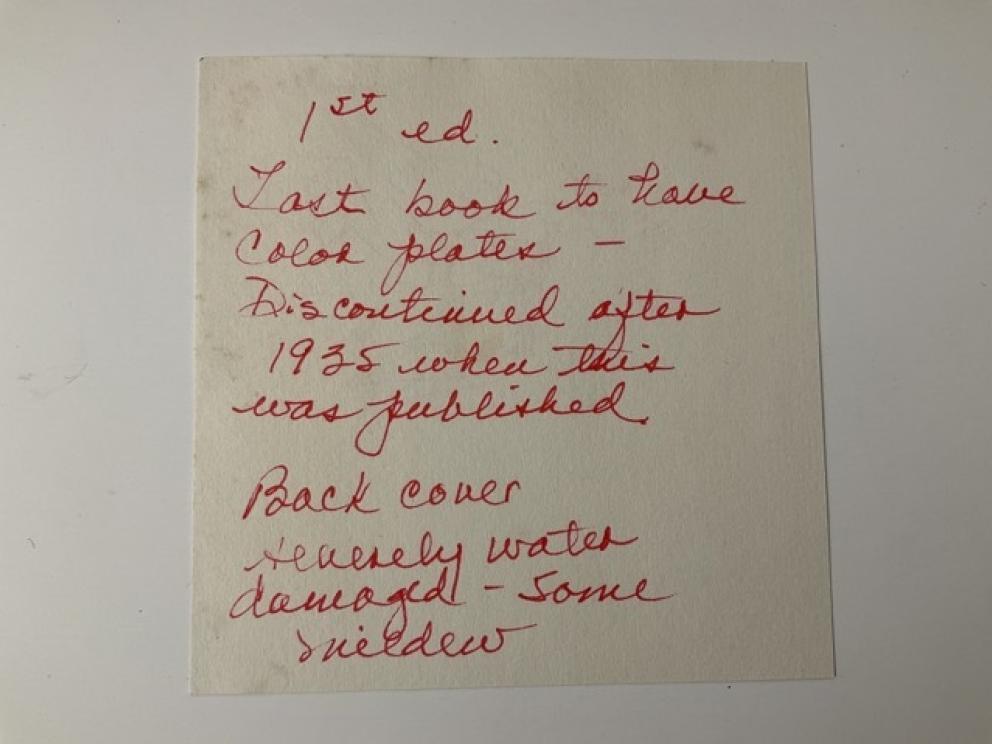 1st ed.
Last book to have
Color plates –
Discontinued after
1935 when this
was published.
Back cover
severely water
damaged – Some
mildew